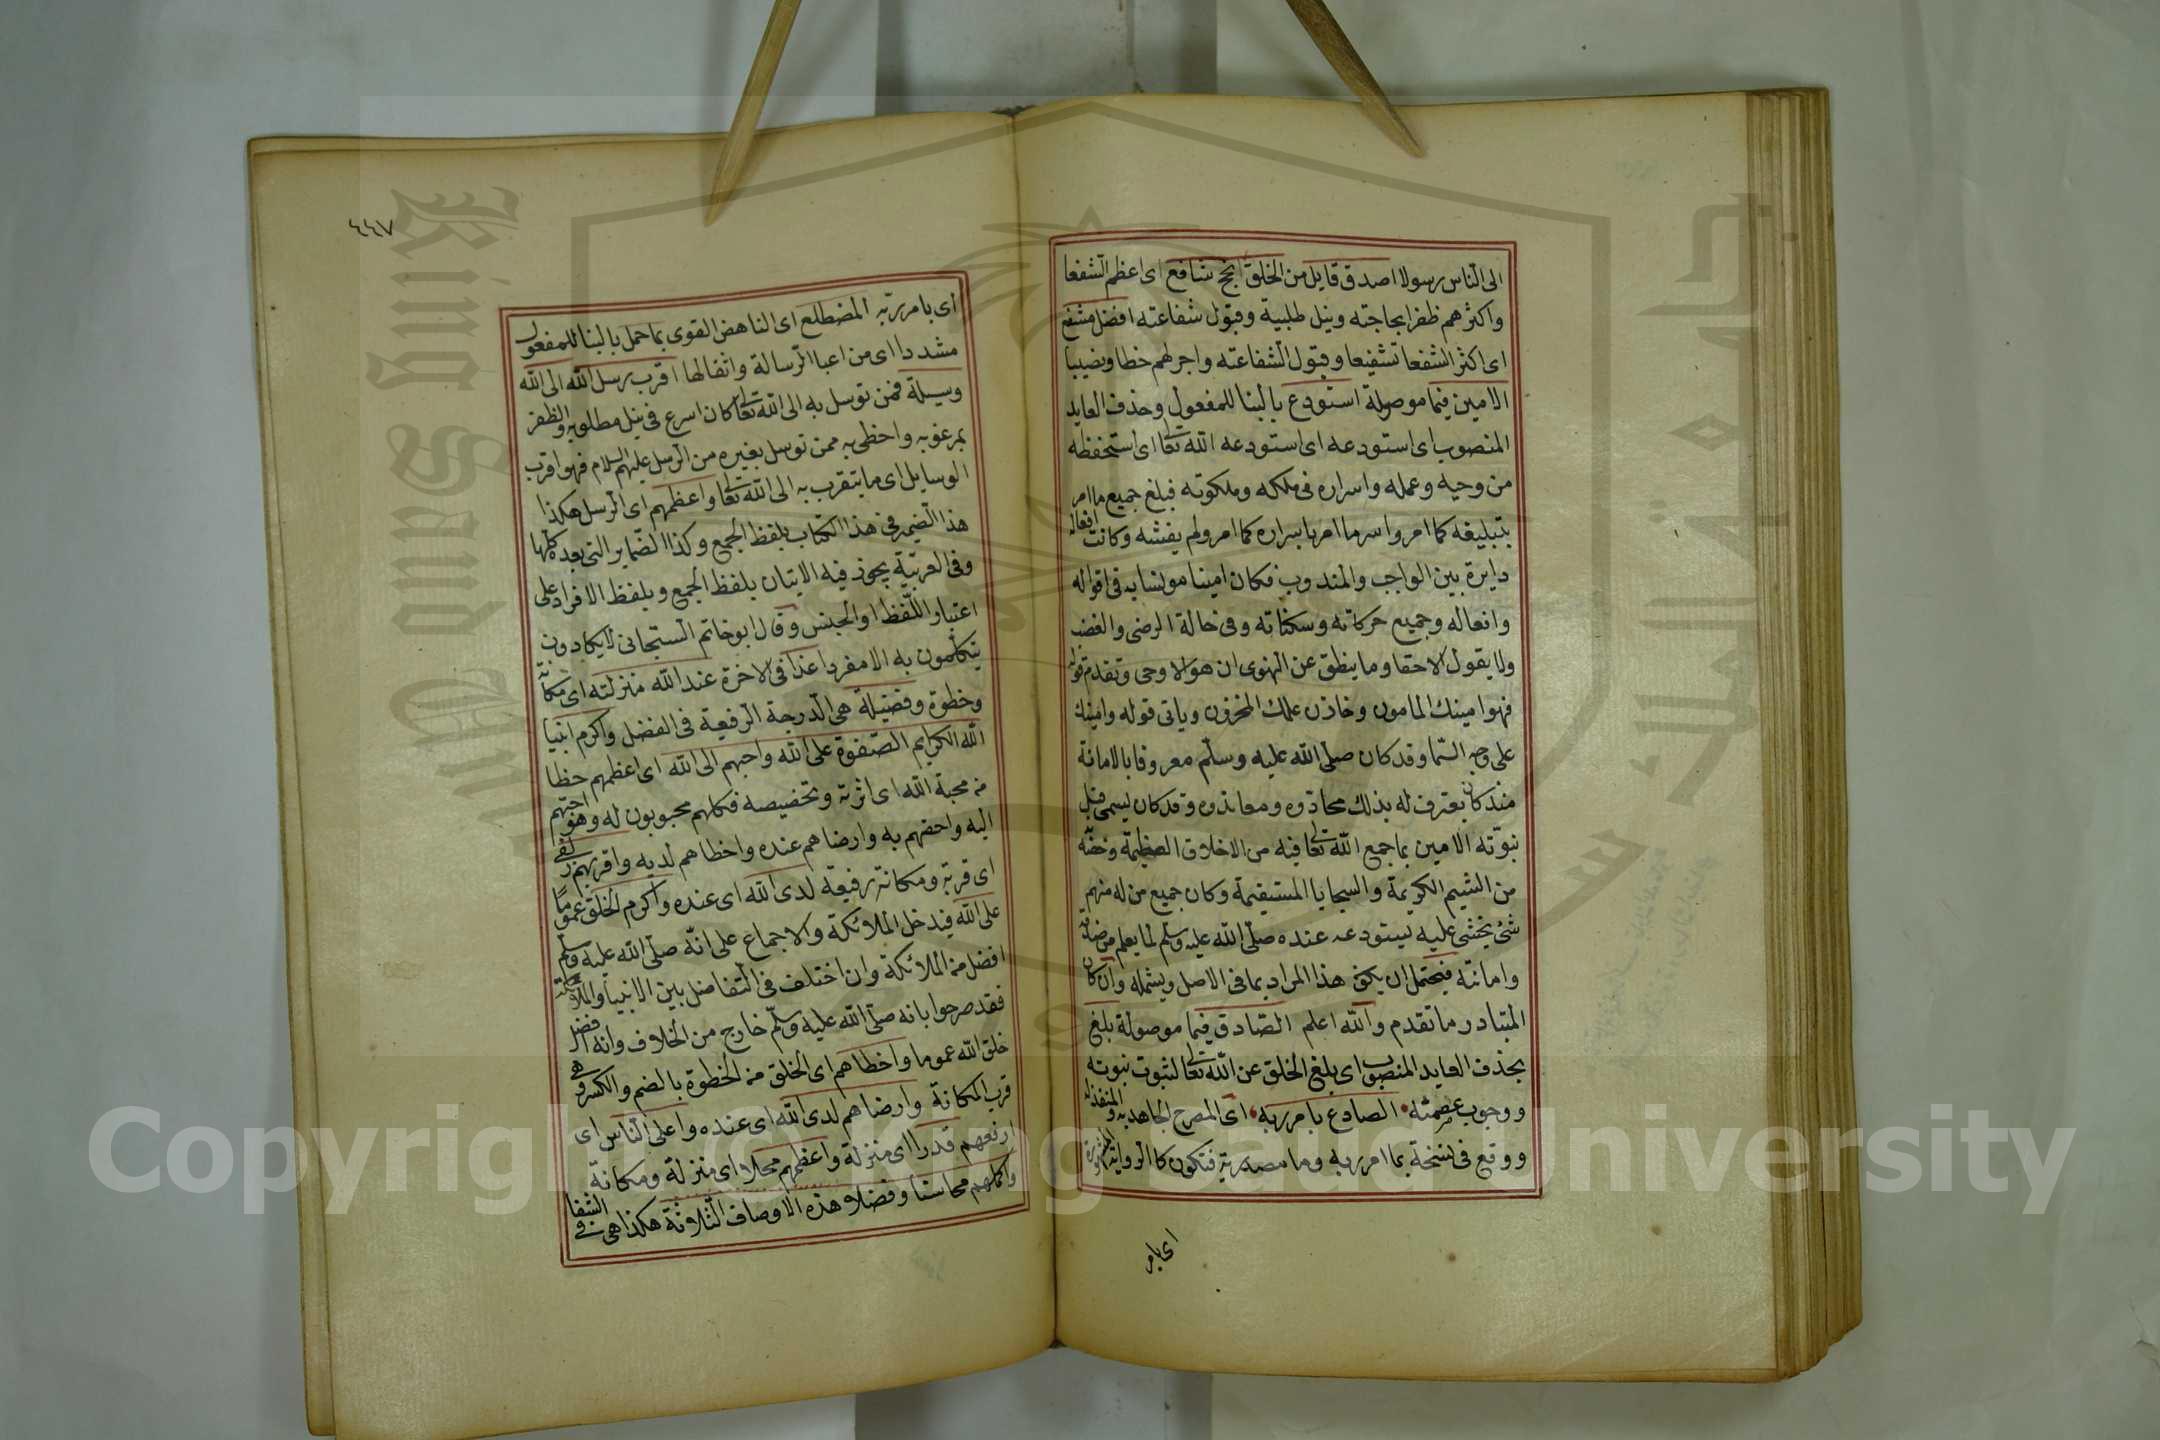 الى الناس رسولا اصدق قايل من الخلق انجح شافع اى اعظم الشفعا
واكثرهم ظفرا بحاجته ونيل طلبية وقبول شفاعته افضل مشفع
اى اكثر الشفعا تشفيعا وقبول الشفاعته واجرلهم حظا ونصيبا
الامين فيما موصولة استودع بالبنا للمفعول وحذف العايد
المنصوب اى استودعه اى استودعه الله تعا اى استحفظه
من وحيه وعمله واسراره فى ملكه وملكوته فبلغ جميع ما امر
بتبليغه كما امر واسر ما امر باسراره كما امر ولم يفشه وكانت افعاله
دايرة بين الواجب والمندوب فكان امينا مونسا به فى اقواله
وافعاله وجميع حركاته وسكناته وفى حالة الرضى والغضب
ولا يقول الاحقا وما ينطق عن الهوى ان هو الا وحى وتقدم قوله
فهو امينك المامون وخازن علمك المخزون وياتى قوله وامينك
على وحى السما وقد كان صلى الله عليه وسلم معروفا بالامانة
منذ كان يعترف له بذلك محادوه ومعاندوه وقد كان يسمى قبل
نبوته الامين بما جمع الله تعا فيه من الاخلاق العظيمة وخصه
من الشيم الكريمة والسجايا المستقيمة وكان جميع من له منهم
شئ يخشى عليه يستودعه عنده صلى الله عليه وسلم لما يعلم من صدقه
وامانته فيحتمل ان يكون هذا المراد بما فى الاصل ويشمله وان كان
المتبادر ما تقدم والله اعلم الصادق فيما موصولة بلغ
بحذف العايد المنصوب اى بلغ الخلق عن الله تعا لثبوت نبوته
ووجوب عصمته الصادع بامر ربه اى المصرح المجاهد به والمنفذ له
ووقع فى نسخة بما امر ربه وما مصدرية فتكون كالرواية المشهورة
اى بامر
٤٤٧
اى بامر ربه المضطلع اى الناهض القوى بما حمل بالبنا للمفعول
مشددا اى من اعبا الرسالة واثقالها اقرب رسل الله الى الله
وسيلة فمن توسل به الى الله تعا كان اسرع فى نيل مطلوبه والظفر
بمرغوبه واحظى به ممن توسل بغيره من الرسل عليهم السلام فهو اقرب
الوسايل اى ما يتقرب به الى الله تعا واعظمهم اى الرسل هكذا
هذا الضمير فى هذا الكتاب بلفظ الجمع وكذا الضماير التى بعده كلها
وفى العربية يجوز فيه الاتيان بلفظ الجمع وبلفظ الافراد على
اعتبار اللفظ او الجنس وقال ابو خاتم السبتجانى لا يكادون
يتكلمون به الا مفردا غدا فى الاخرة عند الله منزلته اى مكانة
وخطوة وفضيلة هى الدرجة الرفيعة فى الفضل واكرم انبيا
الله الكرايم الصفوة على الله واحبهم الى الله اى اعظمهم حظا
من محبة الله اى اثرته وتخصيصه فكلهم محبوبون له وهو احبهم
اليه واخصهم به وارضاهم عنده واخطاهم لديه واقربهم زلفى
اى قربة ومكانة رفيعة لدى الله اى عنده واكرم الخلق عموما
على الله فيدخل الملائكة والاجماع على انه صلى الله عليه وسلم
افضل من الملائكة وان اختلف فى التفاضل بين الانبيا والملائكة
فقد صرحوا بانه صلى الله عليه وسلم خارج من الخلاف وانه افضل
خلق الله عموما واخطاهم اى الخلق من الخطوة بالضم والكسر وهى
قرب المكانة وارضاهم لدى الله اى عنده واعلى الناس اى
ارفعهم قدرا اى منزلة واعظمهم محلا اى منزلة ومكانة
واكملهم محاسنا وفضلا هذه الاوصاف الثلاثة هكذا هى فى الشفا
Copyright © King Saud University
King Saud University